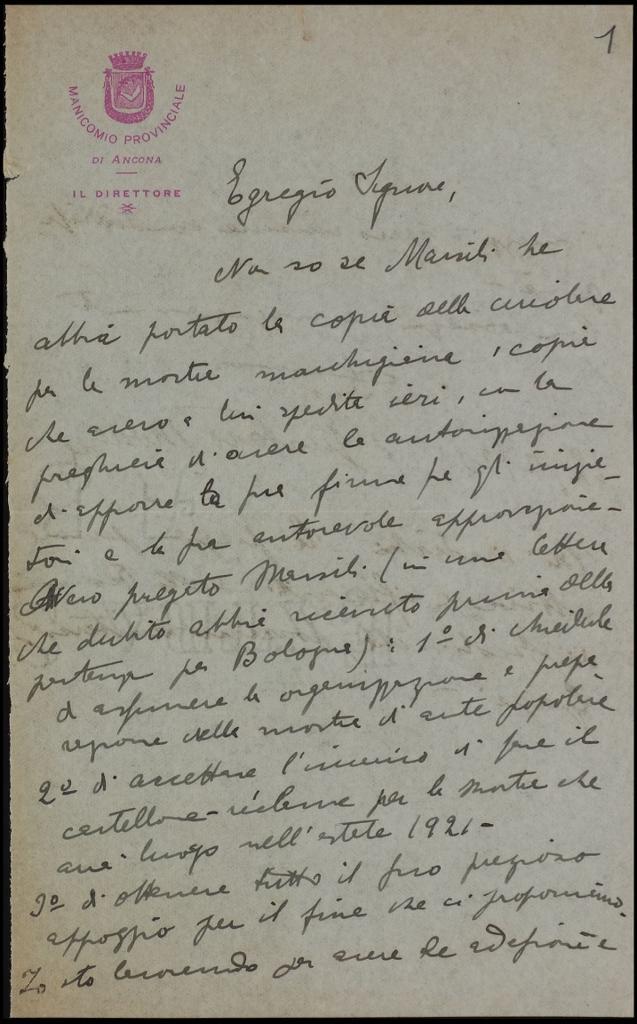 1
MANICOMIO PROVINCIALE
DI ANCONA
IL DIRETTORE
Egregio Signore,
Non so se Marsili le
abbia portato la copia della circolare
per la mostra marchigiana, copia
che avevo a lui spedita ieri, con la
preghiera di avere la autorizzazione
di apporre la sua firma fra gli inizia-
tori e la sua autorevole approvazione -
Avevo pregato Marsili (in una lettera
che dubito abbia ricevuto prima della
partenza per Bologna): 1º di chiederle
di assumere la organizzazione e prepa
razione della mostra di arte popolare
2º di accettare l'incarico di fare il
cartellone-réclame per la mostra che
avrà luogo nell'estate 1921 -
3º di ottenere tutto il suo prezioso
appoggio per il fine che ci proponiamo.
Io sto lavorando per avere le adesioni e